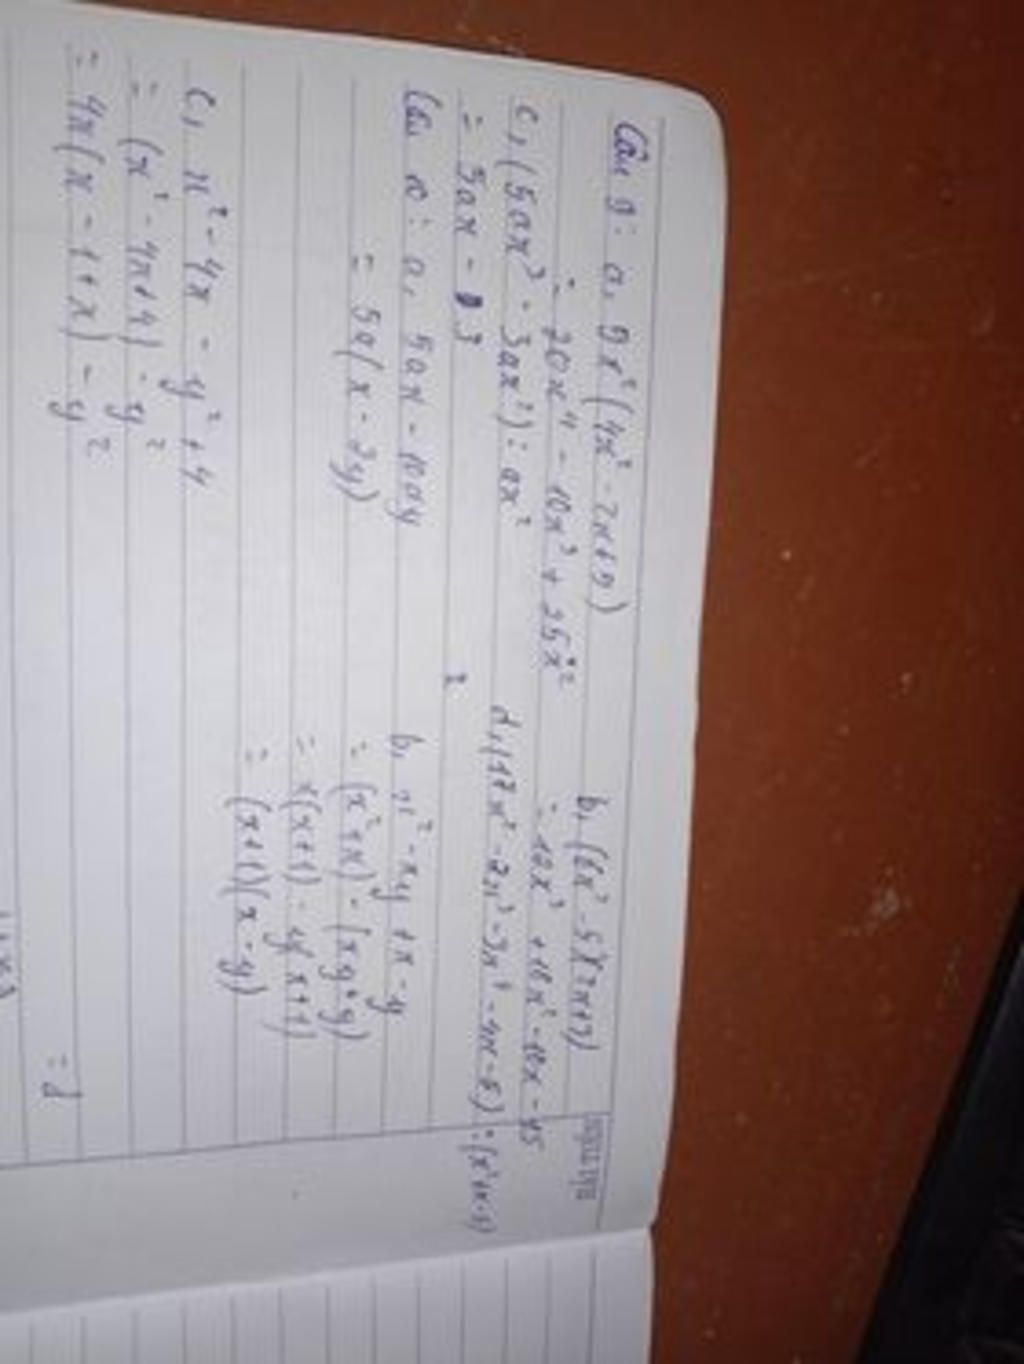 Câu 9: a, 5x²(4x² - 2x + 5)
= 20x⁴ - 10x³ + 25x²
b, (6x² - 5)(2x+3)
= 12x³ + 18x² - 10x - 15
c, (5ax³ - 3ax²) : ax²
= 5ax - 3
Câu 10: a, 5ax - 10ay
= 5a(x - 2y)
b, x² - xy + x - y
= (x² + x) - (xy + y)
= x(x+1) - y(x+1)
= (x+1)(x - y)
c, x² - 4x - y² + 4
= (x² - 4x + 4) - y²
= 4x(x - 1 + x) - y²